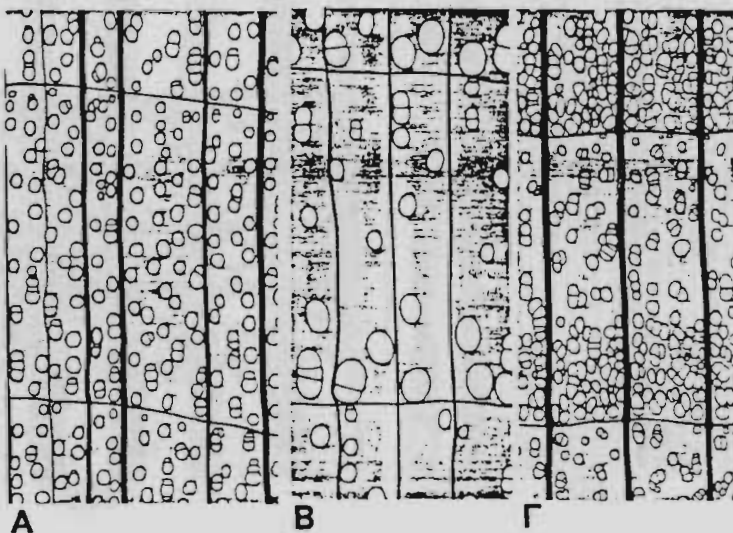 А В Г